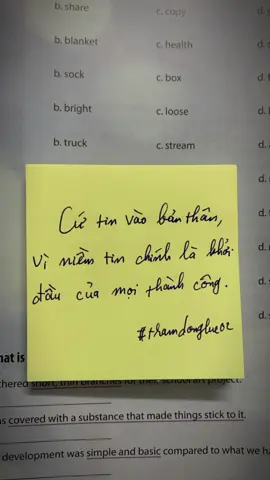 b. share c. copy
b. blanket c. health d.
b. sock c. box d.
b. bright c. loose d.
b. truck c. stream d.
d.
d.
d.
d.
d. s
Cứ tin vào bản thân,
vì niềm tin chính là khởi
đầu của mọi thành công.
#tramdongluc02
hat is
thered short, thin branches for their school art project.
s covered with a substance that made things stick to it.
development was simple and basic compared to what we ha